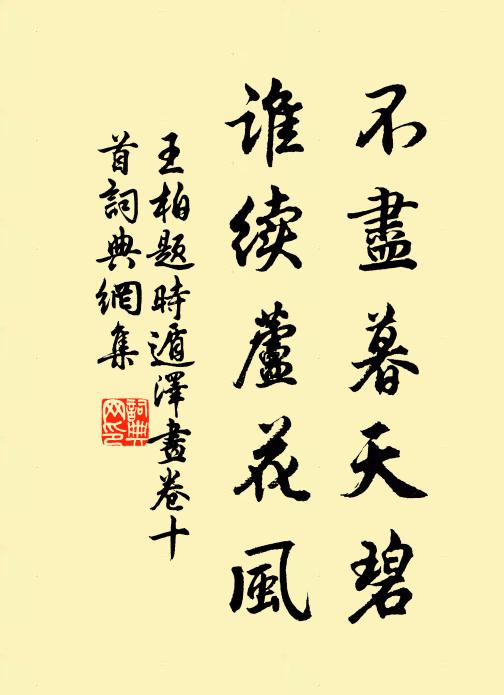 不盡暮天碧
谁續蘆花風
王柏題時遁澤畫卷十
首詞典網集
詞典
网印